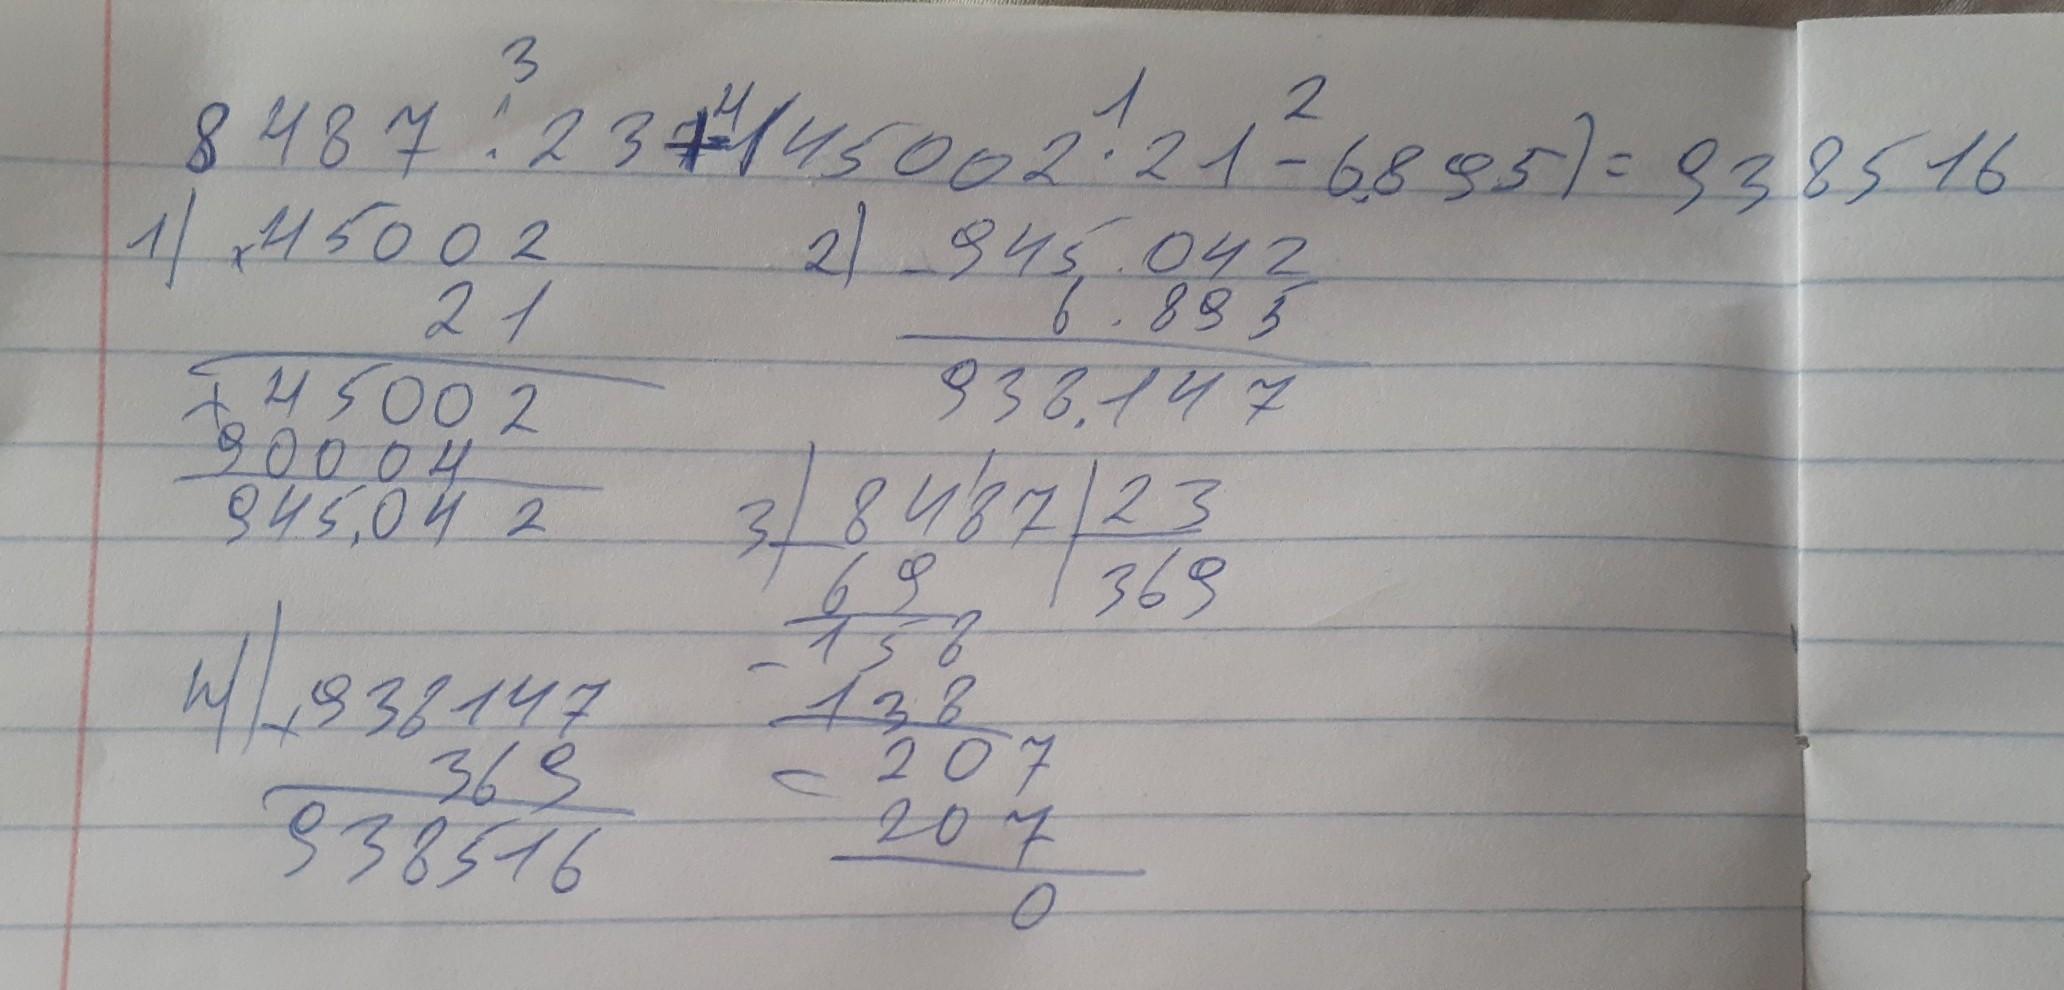 3 4 1 2
8487 : 23 + (45002 · 21 - 6.895) = 938516
1) × 45002 2) - 945.042
21 6.895
+ 45002 938.147
90004
945.042 3) - 8487 | 23
69 369
- 158
4) + 938147 138
369 - 207
938516 207
0